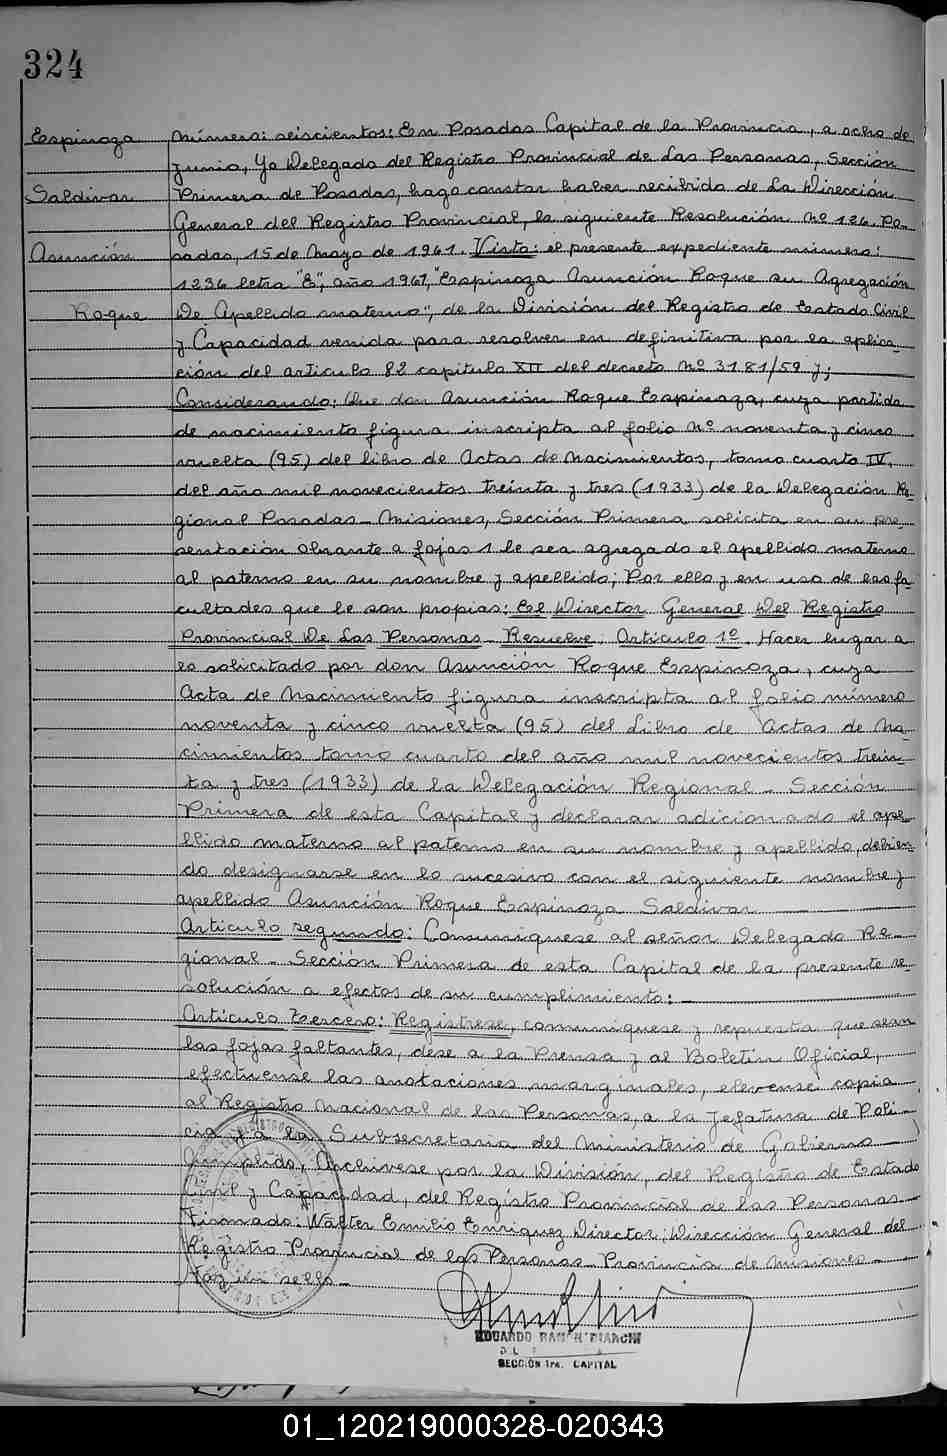 324
Espinoza
Saldivar
Asunción
Roque
Número: seiscientos: En Posadas Capital de la Provincia, a ocho de
junio, Yo Delegado del Registro Provincial de Las Personas, Sección
Primera de Posadas, hago constar haber recibido de La Dirección
General del Registro Provincial, la siguiente Resolución Nº 126. Po-
sadas, 15 de Mayo de 1961. Visto: el presente expediente número:
1236 letra "E", año 1961, "Espinoza Asunción Roque su Agregación
De Apellido materno", de la División del Registro de Estado Civil
y Capacidad venida para resolver en definitiva por la aplica-
ción del articulo 82 capitulo XII del decreto Nº 3181/59 y;
Considerando: Que don Asunción Roque Espinoza, cuya partida
de nacimiento figura inscripta al folio Nº noventa y cinco
vuelta (95) del libro de Actas de Nacimientos, tomo cuarto IV.
del año mil novecientos treinta y tres (1933) de la Delegación Re-
gional Posadas - Misiones, Sección Primera solicita en su pre-
sentación obrante a fojas 1 le sea agregado el apellido materno
al paterno en su nombre y apellido; Por ello y en uso de las fa-
cultades que le son propias: El Director General Del Registro
Provincial De Las Personas - Resuelve: Artículo 1º. Hacer lugar a
lo solicitado por don Asunción Roque Espinoza, cuya
Acta de Nacimiento figura inscripta al folio número
noventa y cinco vuelta (95) del Libro de Actas de Na-
cimientos tomo cuarto del año mil novecientos trein-
ta y tres (1933) de la Delegación Regional - Sección
Primera de esta Capital y declarar adicionado el ape-
llido materno al paterno en su nombre y apellido, debien-
do designarse en lo sucesivo con el siguiente nombre y
apellido Asunción Roque Espinoza Saldivar
Artículo segundo: Comuníquese al señor Delegado Re-
gional - Sección Primera de esta Capital de la presente re-
solución a efectos de su cumplimiento: -
Artículo Tercero: Registrese, comuníquese y repuesta que sean
las fojas faltantes, dese a la Prensa y al Boletin Oficial,
efectuense las anotaciones marginales, elevense copia
al Registro Nacional de las Personas, a la Jefatura de Poli-
cia y a la Subsecretaria del Ministerio de Gobierno -
Cumplido, Archivese por la División, del Registro de Estado
Civil y Capacidad, del Registro Provincial de las Personas -
Firmado: Walter Emilio Enriquez Director; Dirección General del
Registro Provincial de las Personas - Provincia de Misiones -
Hay un sello -
EDUARDO RAMON BIANCHI
SECCION 1ra. CAPITAL
01_120219000328-020343